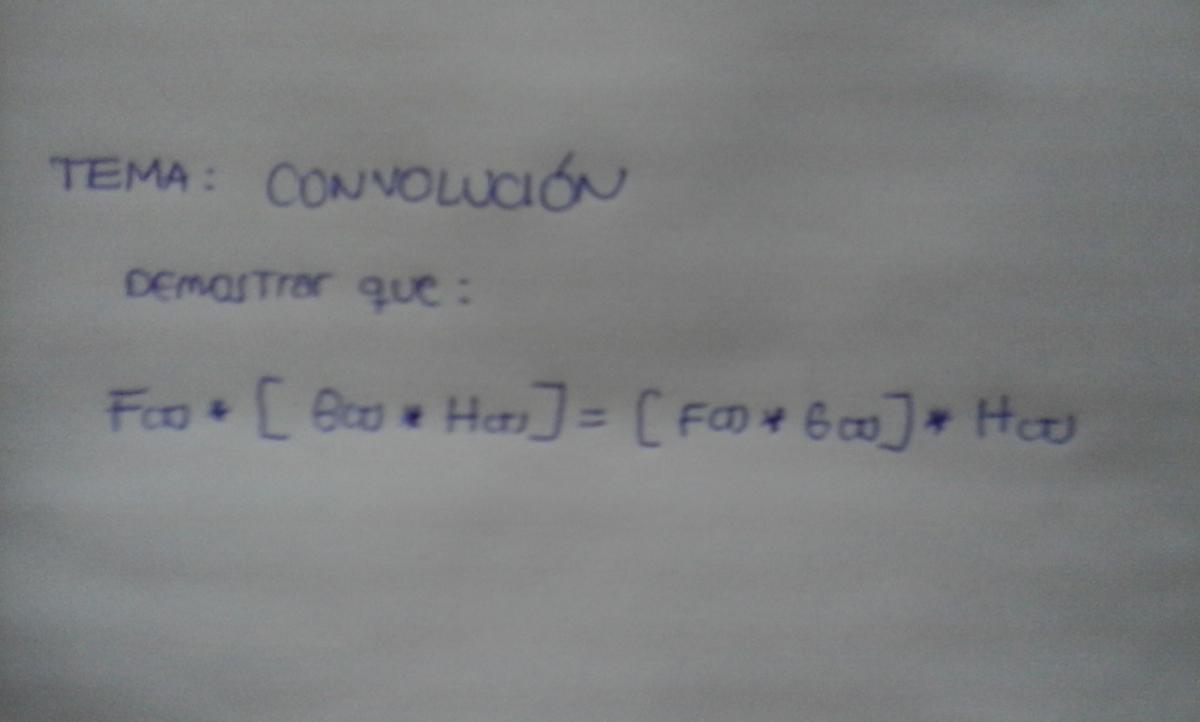 TEMA: CONVOLUCIÓN
DEMOSTrar que:
F(x) * [ G(x) * H(x) ] = [ F(x) * G(x) ] * H(x)